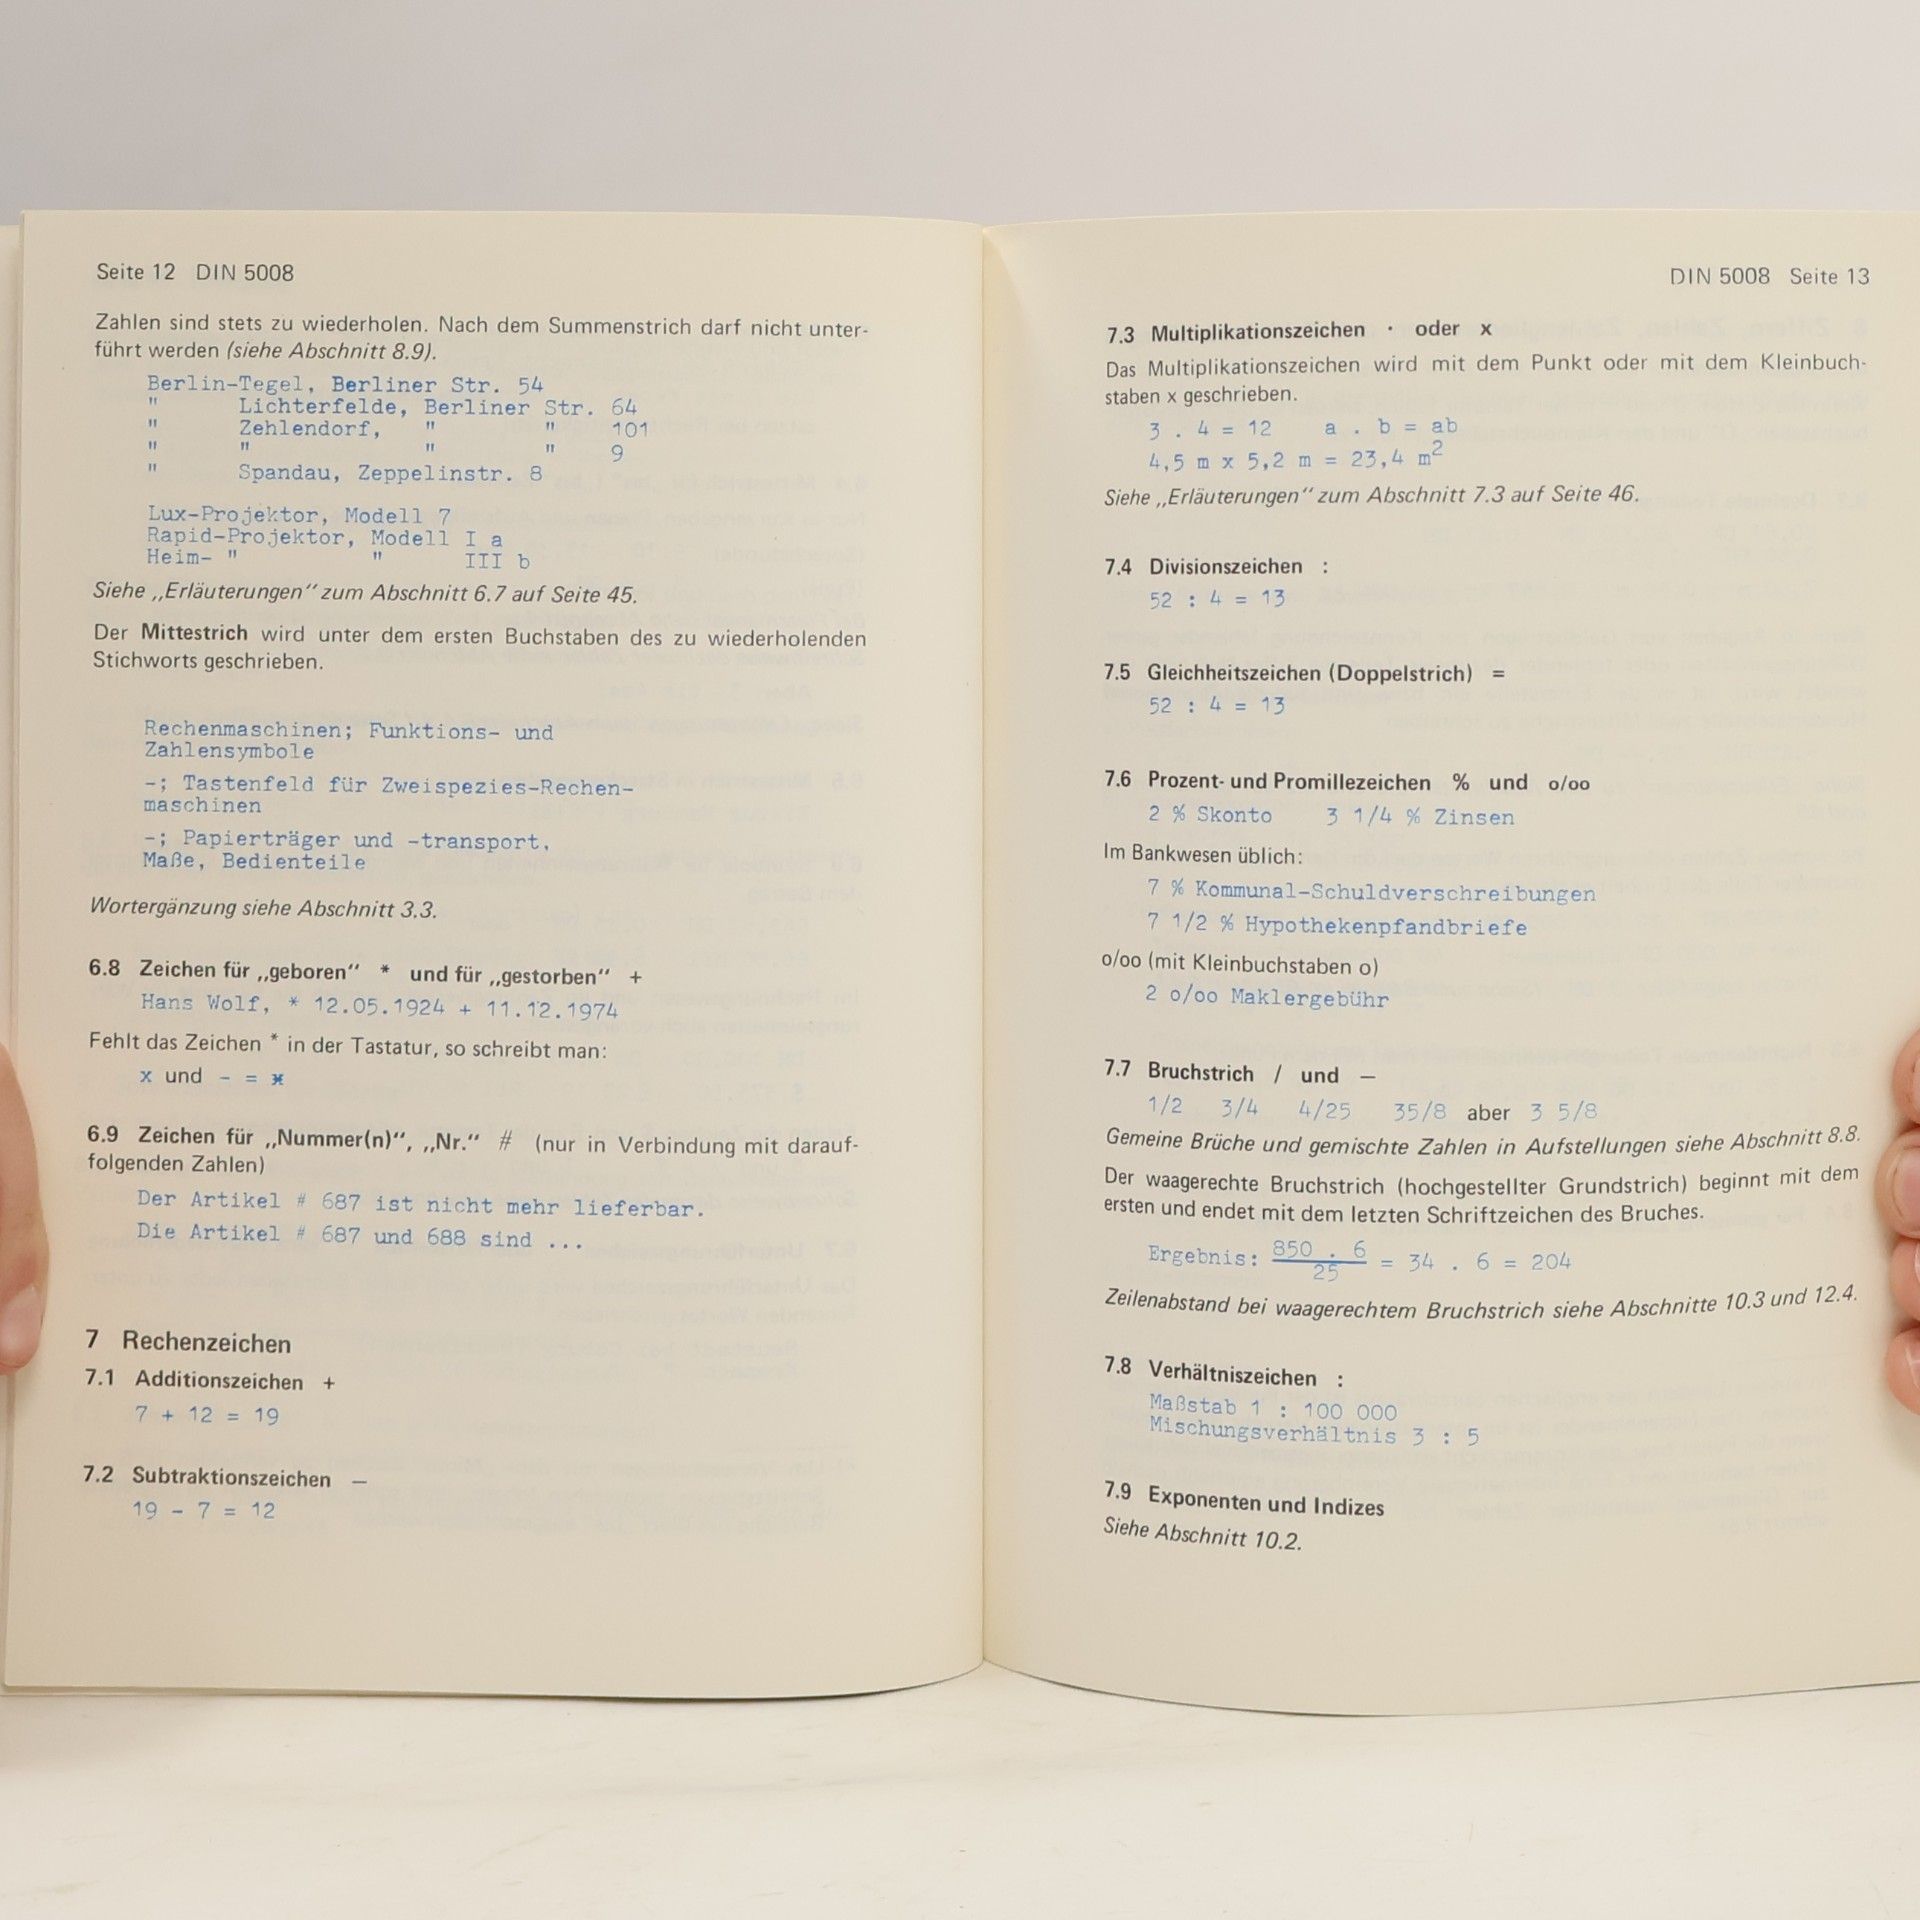 Seite 12 DIN 5008
Zahlen sind stets zu wiederholen. Nach dem Summenstrich darf nicht unter-
führt werden (siehe Abschnitt 8.9).
Berlin-Tegel, Berliner Str. 54
" Lichterfelde, Berliner Str. 64
" Zehlendorf, " " 101
" " " " 9
" Spandau, Zeppelinstr. 8
Lux-Projektor, Modell 7
Rapid-Projektor, Modell I a
Heim- " " III b
Siehe „Erläuterungen" zum Abschnitt 6.7 auf Seite 45.
Der Mittestrich wird unter dem ersten Buchstaben des zu wiederholenden
Stichworts geschrieben.
Rechenmaschinen; Funktions- und
Zahlensymbole
-; Tastenfeld für Zweispezies-Rechen-
maschinen
-; Papierträger und -transport,
Maße, Bedienteile
Wortergänzung siehe Abschnitt 3.3.
6.8 Zeichen für „geboren" * und für „gestorben" +
Hans Wolf, * 12.05.1924 + 11.12.1974
Fehlt das Zeichen * in der Tastatur, so schreibt man:
x und - = ӿ
6.9 Zeichen für „Nummer(n)", „Nr." # (nur in Verbindung mit darauf-
folgenden Zahlen)
Der Artikel # 687 ist nicht mehr lieferbar.
Die Artikel # 687 und 688 sind ...
7 Rechenzeichen
7.1 Additionszeichen +
7 + 12 = 19
7.2 Subtraktionszeichen —
19 - 7 = 12
DIN 5008 Seite 13
7.3 Multiplikationszeichen · oder x
Das Multiplikationszeichen wird mit dem Punkt oder mit dem Kleinbuch-
staben x geschrieben.
3 . 4 = 12 a . b = ab
4,5 m x 5,2 m = 23,4 m²
Siehe „Erläuterungen" zum Abschnitt 7.3 auf Seite 46.
7.4 Divisionszeichen :
52 : 4 = 13
7.5 Gleichheitszeichen (Doppelstrich) =
52 : 4 = 13
7.6 Prozent- und Promillezeichen % und o/oo
2 % Skonto 3 1/4 % Zinsen
Im Bankwesen üblich:
7 % Kommunal-Schuldverschreibungen
7 1/2 % Hypothekenpfandbriefe
o/oo (mit Kleinbuchstaben o)
2 o/oo Maklergebühr
7.7 Bruchstrich / und —
1/2 3/4 4/25 35/8 aber 3 5/8
Gemeine Brüche und gemischte Zahlen in Aufstellungen siehe Abschnitt 8.8.
Der waagerechte Bruchstrich (hochgestellter Grundstrich) beginnt mit dem
ersten und endet mit dem letzten Schriftzeichen des Bruches.
850 . 6
Ergebnis: ――― = 34 . 6 = 204
25
Zeilenabstand bei waagerechtem Bruchstrich siehe Abschnitte 10.3 und 12.4.
7.8 Verhältniszeichen :
Maßstab 1 : 100 000
Mischungsverhältnis 3 : 5
7.9 Exponenten und Indizes
Siehe Abschnitt 10.2.